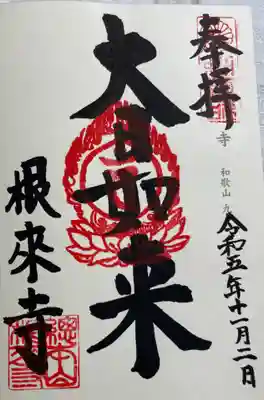 奉拝
寺
和歌山
令和五年十一月二日
大日如来
根來寺